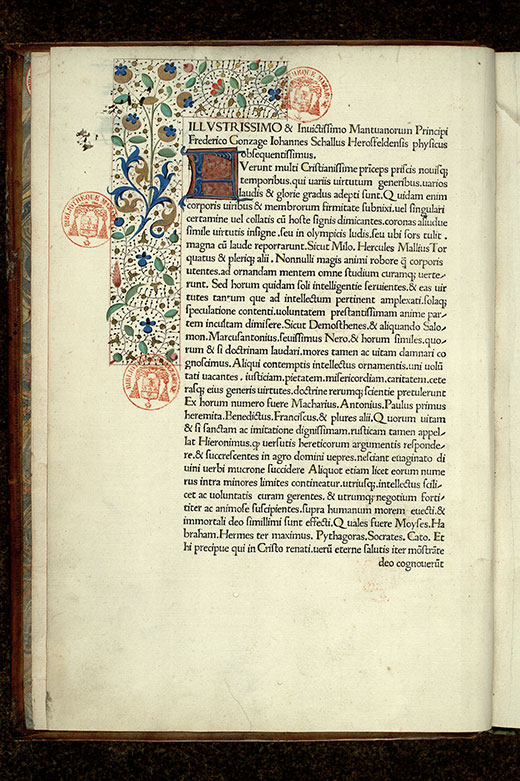 ILLVSTRISSIMO & Inuictissimo Mantuanorum Principi
Frederico Gonzage Iohannes Schallus Herosfeldensis physicus
obsequentissimus.
Verunt multi Cristianissime prīceps priscis nouisq;
temporibus.qui uariis uirtutum generibus.uarios
laudis & glorie gradus adepti sunt. Quidam enim
corporis uiribus & membrorum firmitate subnixi.uel singulari
certamine uel collatis cū hoste signis dimicantes.coronas aliudue
simile uirtutis insigne.seu in olympicis ludis.seu ubi fors tulit.
magna cū laude reportarunt. Sicut Milo. Hercules Mallius Tor
quatus & pleriq; alii. Nonnulli magis animi robore q̄ corporis
utentes.ad ornandam mentem omne studium curamq; uerte-
runt. Sed horum quidam soli intelligentie seruientes.& eas uir
tutes tantum que ad intellectum pertinent amplexati.solaq;
speculatione contenti.uoluntatem prestantissimam anime par-
tem incustam dimisere. Sicut Demosthenes.& aliquando Salo-
mon. Marcusantonius.seuissimus Nero.& horum similes.quo-
rum & si doctrinam laudari.mores tamen ac uitam damnari co
gnoscimus. Aliqui contemptis intellectus ornamentis.uni uolū
tati uacantes.iusticiam.pietatem.misericordiam.caritatem.cete
rasq; eius generis uirtutes.doctrine rerumq; scientie pretulerunt
Ex horum numero fuere Macharius. Antonius. Paulus primus
heremita. Benedictus. Franciscus.& plures alii. Quorum uitam
& si sanctam ac imitatione dignissimam.rusticam tamen appel-
lat Hieronimus.q; uersutis hereticorum argumentis responde-
re.& succrescentes in agro domini uepres.nesciant euaginato di
uini uerbi mucrone succidere Aliquot etiam licet eorum nume
rus intra minores limites contineatur.utriusq;.intellectus scili-
cet ac uoluntatis curam gerentes.& utrumq; negotium forti-
titer ac animose suscipientes.supra humanum morem euecti.&
immortali deo simillimi sunt effecti. Quales fuere Moyses. Ha
braham. Hermes ter maximus. Pythagoras. Socrates. Cato. Et
hi precipue qui in Cristo renati.uerū eterne salutis iter mōstrāte
deo cognouerūt
BIBLIOTHEQUE MAZARINE
BIBLIOTHEQUE MAZARINE